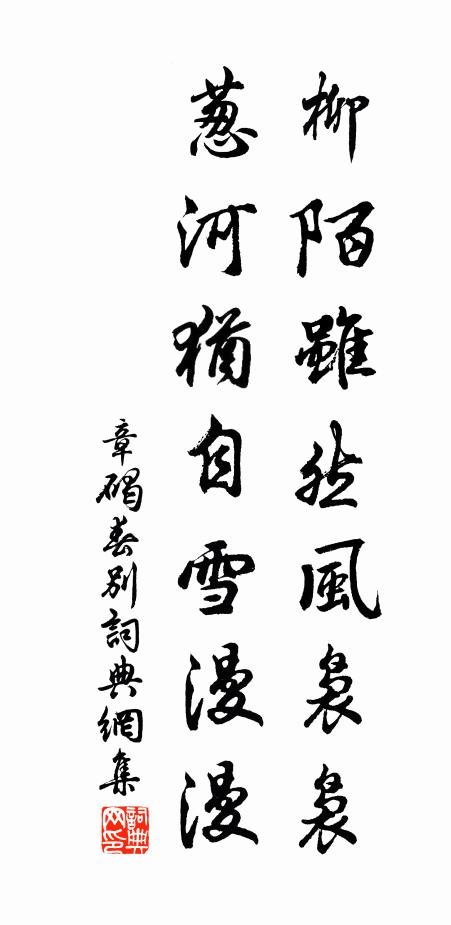 柳陌雖然風裊裊
葱河猶自雪漫漫
章碣春別詞典網集
詞典網印